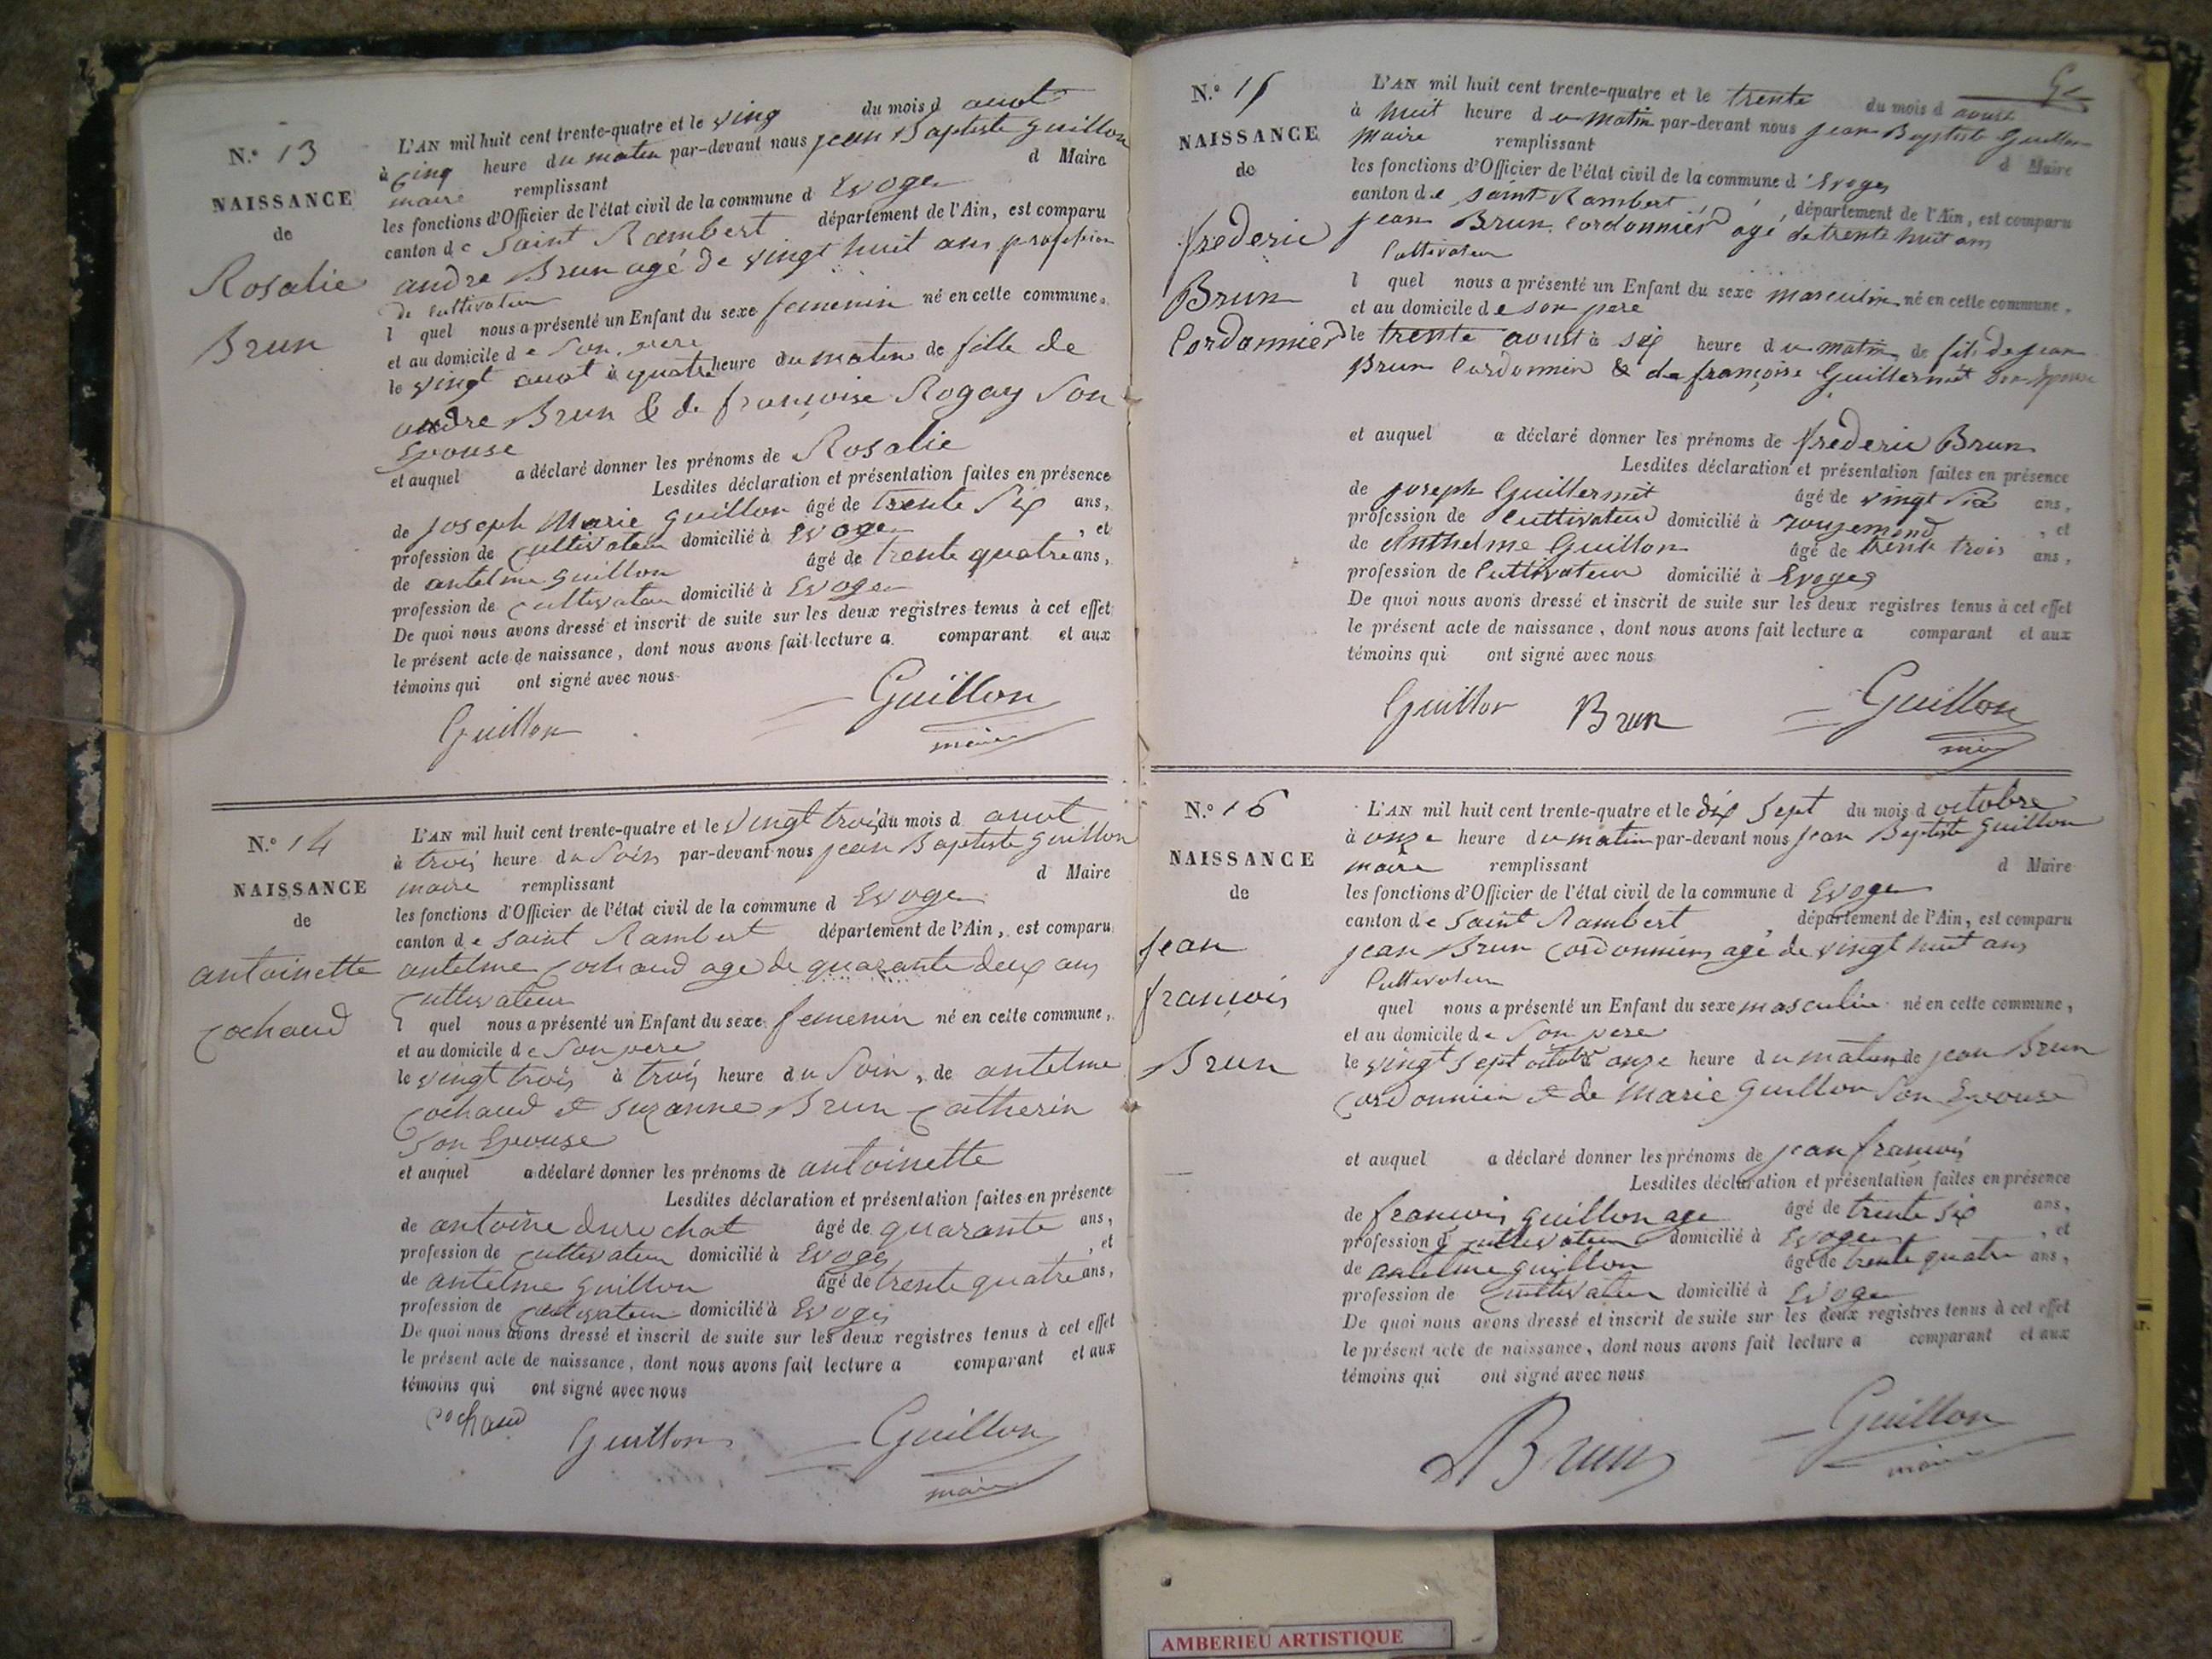 N.o 13
NAISSANCE
de
Rosalie
Brun
L'AN mil huit cent trente-quatre et le ving du mois d auot
à cinq heure du matin par-devant nous jean Baptiste guillon
maire remplissant d Maire
les fonctions d'Officier de l'état civil de la commune d Evoge
canton de Saint Rambert département de l'Ain, est comparu
andre Brun agé de vingt huit ans profession
de cultivateur
l quel nous a présenté un Enfant du sexe femenin né en cette commune,
et au domicile de Son pere
le vingt auot à quatre heure du matin de fille de
andre Brun & de françoise Rogay Son
Epouse
et auquel a déclaré donner les prénoms de Rosalie
Lesdites déclaration et présentation faites en présence
de joseph Marie guillon âgé de trente Six ans,
profession de cultivateur domicilié à Evoge , et
de antelme guillon âgé de trente quatre ans,
profession de cultivateur domicilié à Evoge
De quoi nous avons dressé et inscrit de suite sur les deux registres tenus à cet effet
le présent acte de naissance, dont nous avons fait lecture a comparant et aux
témoins qui ont signé avec nous
Guillon Guillon
maire
N.o 14
NAISSANCE
de
antoinette
cochaud
L'AN mil huit cent trente-quatre et le vingt trois du mois d auot
à trois heure du Soir par-devant nous jean Baptiste guillon
maire remplissant d Maire
les fonctions d'Officier de l'état civil de la commune d Evoge
canton de saint Rambert département de l'Ain, est comparu
antelme cochaud age de quarante deux ans
cultivateur
l quel nous a présenté un Enfant du sexe femenin né en cette commune,
et au domicile de Son pere
le vingt trois à trois heure du Soir, de antelme
cochaud et suzanne Brun catherin
Son Epouse
et auquel a déclaré donner les prénoms de antoinette
Lesdites déclaration et présentation faites en présence
de antoine durochat âgé de quarante ans,
profession de cultivateur domicilié à Evoges , et
de antelme guillon âgé de trente quatre ans,
profession de cultivateur domicilié à Evoges
De quoi nous avons dressé et inscrit de suite sur les deux registres tenus à cet effet
le présent acte de naissance, dont nous avons fait lecture a comparant et aux
témoins qui ont signé avec nous
cochaud Guillon Guillon
maire
N.o 15
NAISSANCE
de
frederic
Brun
Cordonnier
L'AN mil huit cent trente-quatre et le trente du mois d aoust
à huit heure du matin par-devant nous jean Baptiste Guillon
Maire remplissant d Maire
les fonctions d'Officier de l'état civil de la commune d'Evoges
canton de saint Rambert, département de l'Ain, est comparu
jean Brun Cordonnier agé de trente huit ans
Cultivateur
l quel nous a présenté un Enfant du sexe masculin né en cette commune,
et au domicile de son pere
le trente aoust à six heure du matin de fils de jean
Brun Cordonnier & de françoise Guillermet son Epouse
et auquel a déclaré donner les prénoms de frederic Brun
Lesdites déclaration et présentation faites en présence
de joseph Guillermet âgé de vingt six ans,
profession de Cultivateur domicilié à rougemond , et
de Anthelme Guillon âgé de trente trois ans,
profession de Cultivateur domicilié à Evoges
De quoi nous avons dressé et inscrit de suite sur les deux registres tenus à cet effet
le présent acte de naissance, dont nous avons fait lecture a comparant et aux
témoins qui ont signé avec nous
Guillon Brun Guillon
N.o 16
NAISSANCE
de
jean
francois
Brun
L'AN mil huit cent trente-quatre et le dix Sept du mois d octobre
à onze heure du matin par-devant nous jean Baptiste guillon
maire remplissant d Maire
les fonctions d'Officier de l'état civil de la commune d Evoge
canton de Saint Rambert, département de l'Ain, est comparu
jean Brun cordonnier agé de vingt huit ans
Cultivateur
quel nous a présenté un Enfant du sexe masculin né en cette commune,
et au domicile de Son pere
le vingt Sept octobre onze heure du matin de jean Brun
cordonnier & de Marie guillon Son Epouse
et auquel a déclaré donner les prénoms de jean francois
Lesdites déclaration et présentation faites en présence
de francois guillon age âgé de trente six ans,
profession d cultivateur domicilié à Evoge , et
de antelme guillon âgé de trente quatre ans,
profession de Cultivateur domicilié à Evoge
De quoi nous avons dressé et inscrit de suite sur les deux registres tenus à cet effet
le présent acte de naissance, dont nous avons fait lecture a comparant et aux
témoins qui ont signé avec nous
Brun Guillon
maire
AMBERIEU ARTISTIQUE